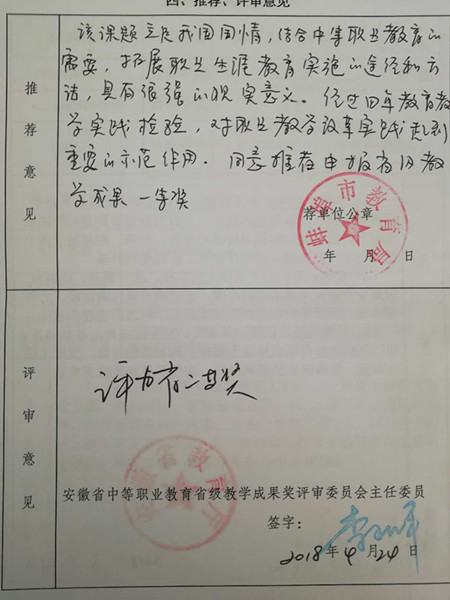 四、推荐、评审意见
推荐意见
该课题立足我国国情,结合中等职业教育的
需要,拓展职业生涯教育实施的途径和方
法,具有很强的现实意义。经过四年教育教
学实践检验,对职业教学改革实践起到
重要的示范作用。同意推荐申报省级教
学成果一等奖
蚌埠市教育局
荐单位公章
年 月 日
评审意见
评为省二等奖
安徽省教育厅
安徽省中等职业教育省级教学成果奖评审委员会主任委员
签字:
2018年4月24日